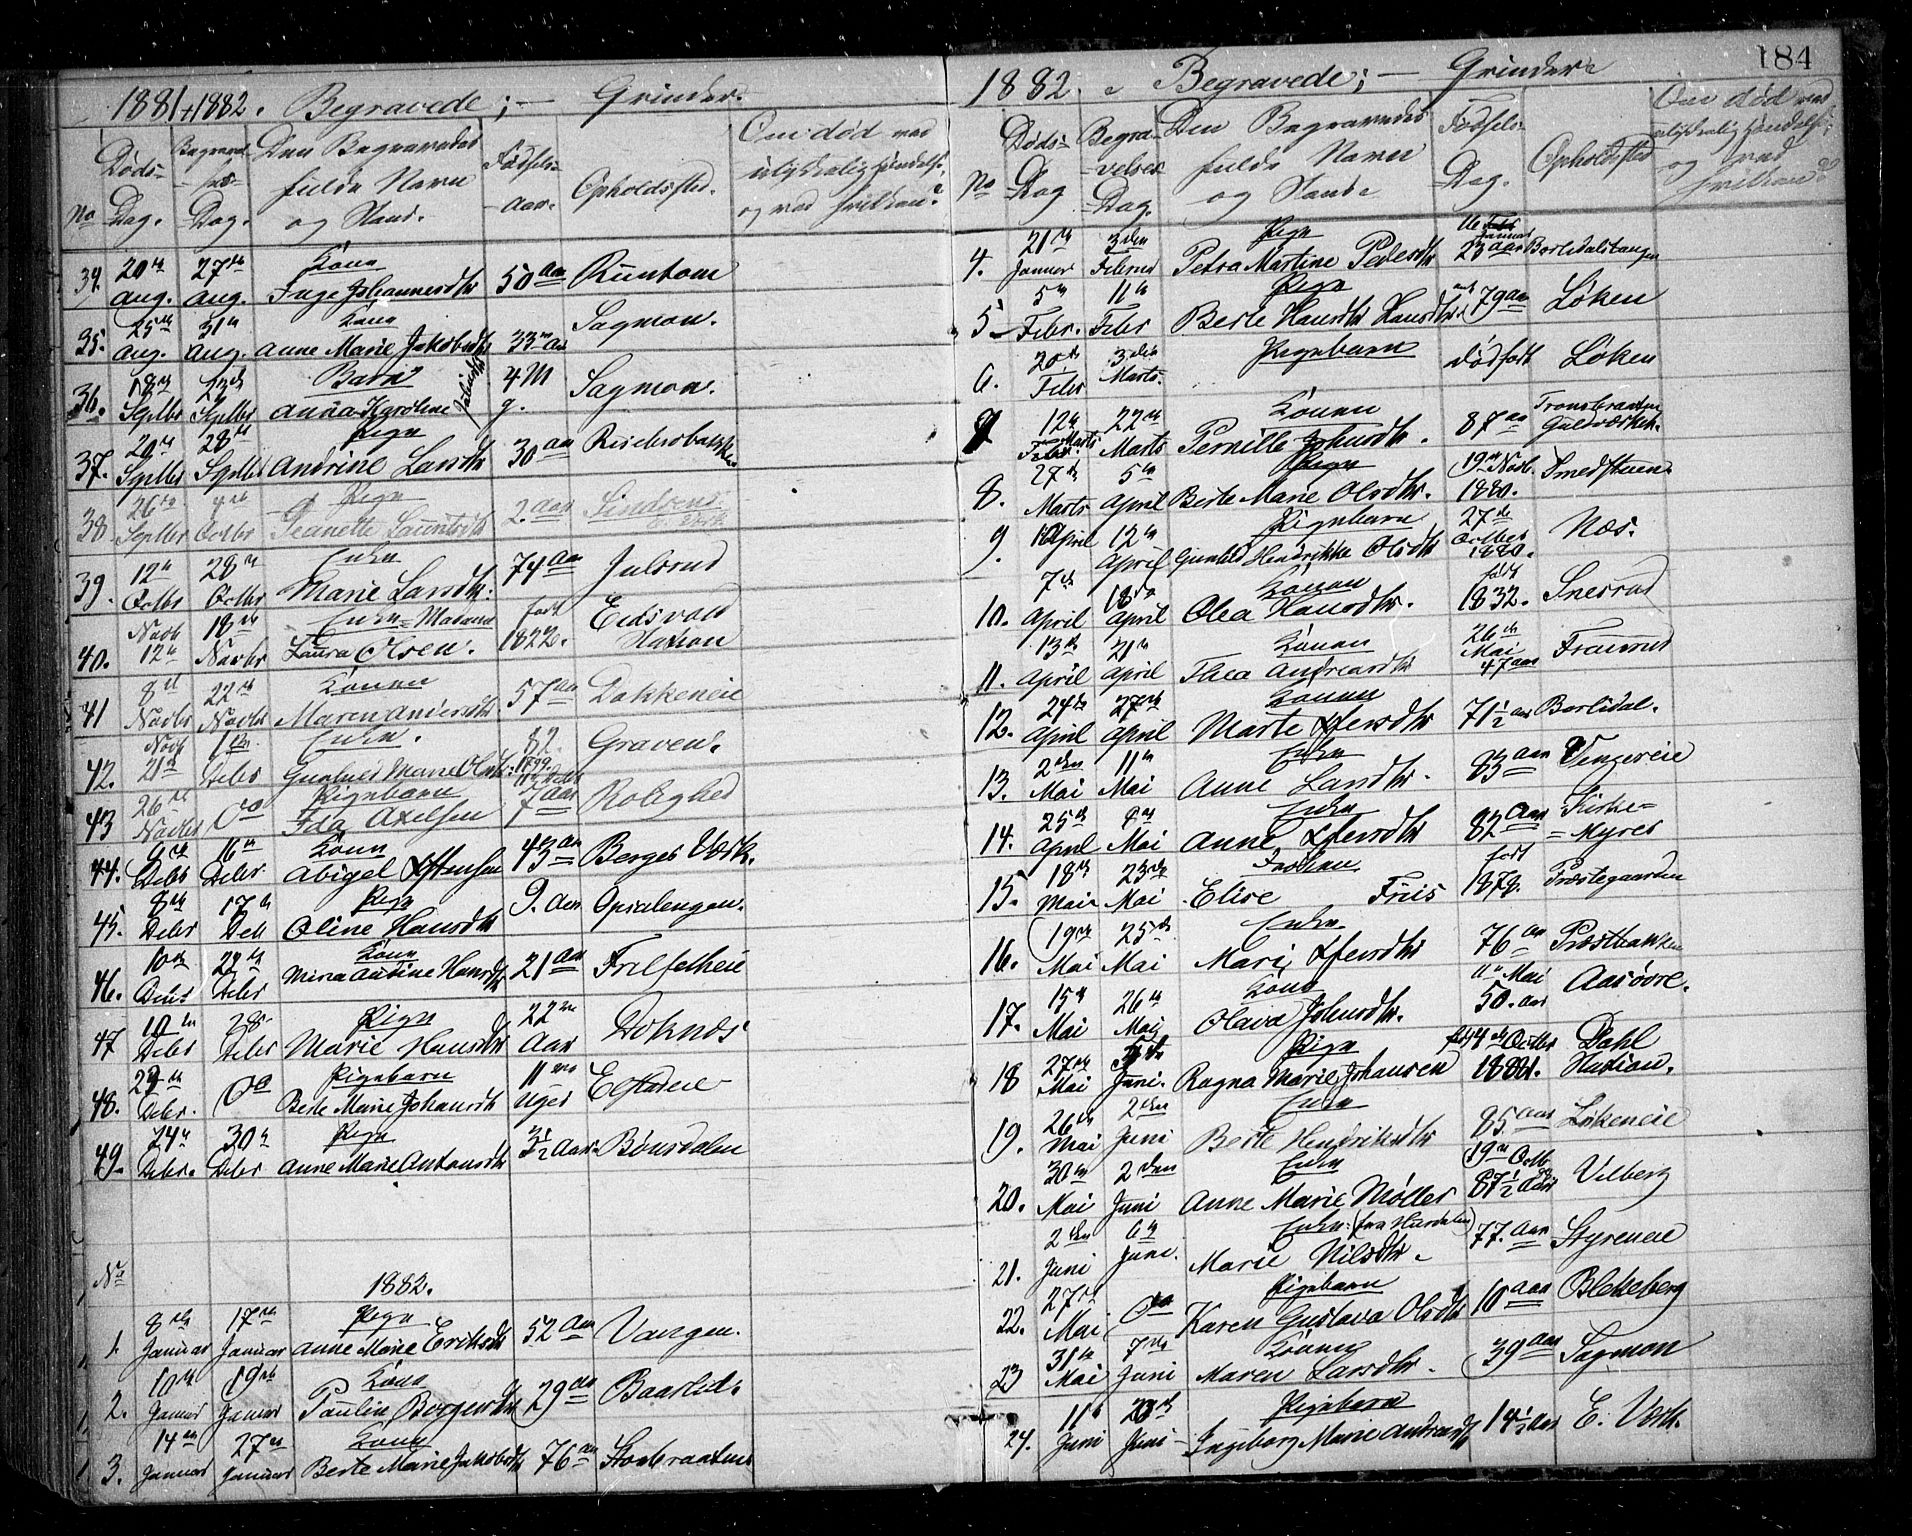 1881 + 1882. Begravede; — Grinder.
No
Døds-
Dag.
Begravel-
ses-
Dag.
Den Begravedes
fulde Navn
og Stand.
Fødsels-
aar.
Opholdssted.
Om død ved
ulykkelig Hændelse,
og ved hvilken?
34. 20de Aug. 27de Aug. Kone
Inge Johannesdtr 50 Aar
35. 25de Aug. 31te Aug. Kone
Anne Marie Jakobsdtr 33 Aar Sagmon.
36. 18de Septbr 23de Septbr Barn
Anna Karoline 4 M g. Sagmon.
37. 20de Septbr 28de Septbr Pige
Andrine Larsdtr 30 Aar
38 26de Septbr Octbr Pige
Jeanette 2. Aar
39. 12te Octbr 28de Octbr Enke
Marie Larsdtr. 74 Aar Julsrud
40. Novb 12te 18de Novbr Enke Madame
Laura Olsen. født 1822. Eidsvold
Station
41 8de Novbr 22de Novbr Konen
Maren Andersdtr 57 Aar Dokkeneie
42. Novb 21de 1ste Debr Enke.
Marie Olsdtr. 82. 1799. Graven.
43 26de Novbr Do Pigebarn
Ida Axelsen 7 Aar Rolighed
44. Debr 16de Debr Kone
Abigel Steffensen 43 Aar Berger Værk.
45. 8de Debr 17de Deb Pige
Oline Hansdtr 9. Aar
46. 10de Debr 22de Debr Kone
Mina Andine Hansdtr 21 Aar
47 10de Debr 28de Debr Pige
Marie Hansdtr 22 Aar Doknæs
48. 29de Debr. Do Pigebarn
Berte Marie Johansdtr 11 Uger
49. 24de Debr. 30te Debr Pige
Anne Marie Antonsdtr 3½ Aar Bønsdalen
No
1882.
1. 8de Januar 17de Januar Pige
Anne Marie Eriksdtr 52 Aar Vangen.
2. 10de Januar 19de Januar Kone
Pauline Borgersdtr 29 Aar Baarlid.
3. 14de Januar 27de Januar Kone
Berte Marie Jakobsdtr 76 Aar
184
1882. Begravede; — Grinder
No
Døds-
Dag
Begra-
velses
Dag.
Den Begravedes
fulde Navn
og Stand
Fødsels-
Dag.
Opholdssted
Om død ved
ulykkelig Hændelse,
og ved
hvilken?
4. 21de Januar 3die Februar Pige
Petra Martine Pedersdtr Januar 23 Aar
5 5te Febr. 11te Febr Pige
Berte Hansdtr Hansdtr. 79 Aar Løken
6. 20de Febr 3die Marts. Pigebarn dødfødt Løken
7 12te Marts 22de Marts Konen
Pernille Johnsdtr. 87 Aar Guldverket.
8. 27de Marts 5te April Pige
Berte Marie Olsdtr. 19de Novb. 1880. Smedstuen
9 April 12te April Pigebarn
Gunhild Hendrikke Olsdtr 27de Octber 1880. Næs.
10. 7de April 18de April Konen
Olea Hansdtr. født 1832. Snesrud
11. 13de April 21de April Konen
Thea Andreasdtr 26de Mai 47 Aar
12. 24de April 27de April Konen
Marte Steffensdtr 71½ Aar Borlidal.
13. 2den Mai 11te Mai Enke
Anne Larsdtr. 83 Aar
14. 25de April 8de Mai Enke
Anne Steffensdtr 82 Aar Kirke-
Myrer
15. 18de Mai 23de Mai Frøken
Elise Friis født 1878. Præstegaarden
16. 19de Mai 25de Mai Enke
Mari Steffensdtr 76 Aar Præstbakken
17. 15de Mai 26de Mai Kone
Olava Johnsdtr. 11te Mai 50. Aar Aasøvre.
18 27de Mai Juni. Pige
Ragna Marie Johansen Octbr 1881. Dahl
Station.
19. 26de Mai 2den Juni Enke
Berte Hendriksdtr 85 Aar Løkeneie
20. 30te Mai 2den Juni Enke
Anne Marie Møller 19de Octb 87½ Aar Vilberg
21. 2den Juni 6te Juni. Enke. (fra Hurdalen)
Marie Nilsdtr. 77. Aar Styreneie
22. 27de Mai Do Pigebarn
Karen Gustava Olsdtr 10 Aar Blekeberg
23 31te Mai 7de Juni Konen
Maren Larsdtr. 39 Aar Sagmon
24. 11te Juni 23de Juni Pigebarn
Ingeborg Marie Andreasdtr 14½ Aar E. Værk.